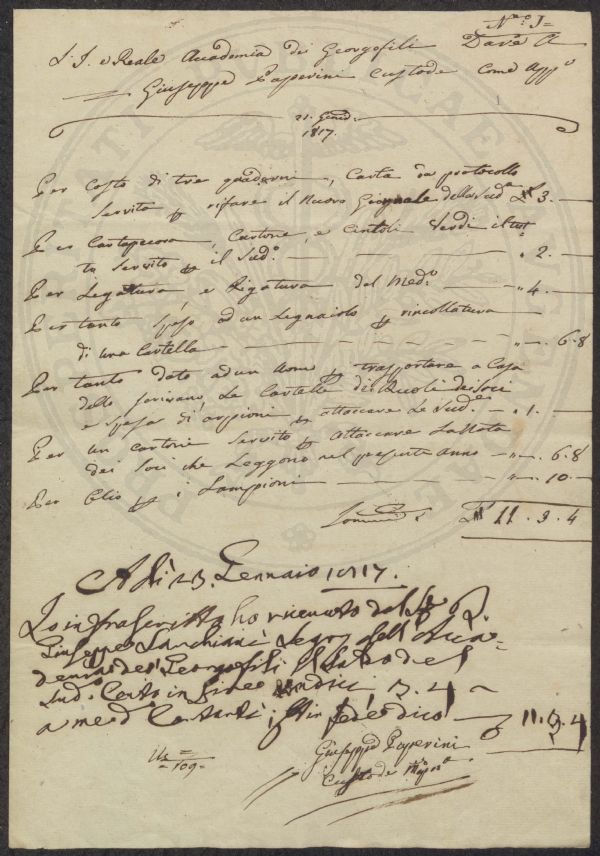 N.ro I=
L'I. e Reale Accademia dei Georgofili Dare A
Giuseppe Paperini Custode Come App.o
21. Genn.o
1817.
Per Costo di tre quaderni, Carta da protocollo
Servito p rifare il Nuovo Giornale della Sud.a £ 3. —
Per Cartapecora, Cartone, e Cintoli Verdi il tut
to Servito p il Sud.o — " 2. —
Per Legatura, e Rigatura del Med.o — " 4. —
Per tanto speso ad un Legnaiolo p rincollatura
di una Cartella — " — . 6. 8
Per tanto dato ad un Uomo p trasportare a Casa
dello scrivano Le Cartelle di Ruoli dei Soci
e Spesa di arpioni p attaccare Le Sud.e — " 1. —
Per un cartone Servito p attaccare La Nota
dei Soci che Leggono nel presente anno — " — . 6. 8
Per Olio p i Lampioni — " — . 10. —
£ 11. 3. 4
A dì 23. Gennaio 1817.
Io infrascritto ho ricevuto dal Sig.
Giuseppe Sarchiani Legon dell'Acca-
demia dei Georgofili il Saldo del
Sud. Conto in Lire undici, 3. 4 ~
a me d. Contanti, in fede dico — £ 11. 3. 4
Giuseppe Paperini
Custode
109.